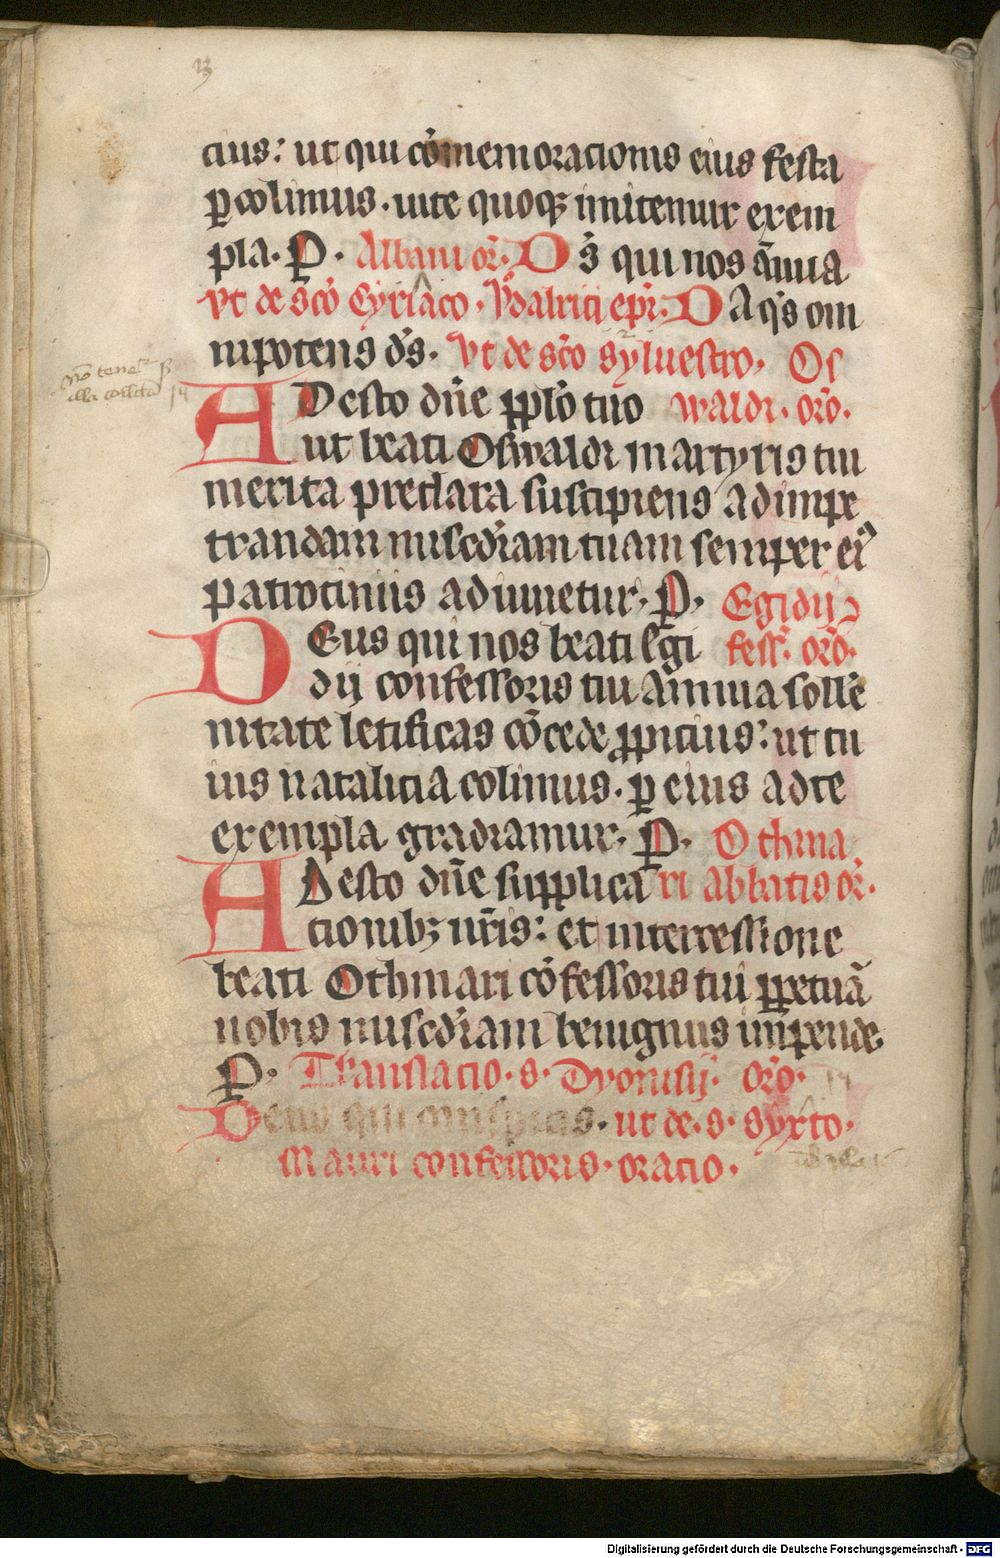 13
cius: ut qui cōmemoracionis eius festa
ꝑcolimus. uite quoqꝫ imitemur exem
pla. P. Albani or̄. Ds̄ qui nos ānua
Vt de sc̄o Cyriaco. Vdalrici ep̄i. Da qs̄ om
nipotens ds̄. Vt de sc̄o Syluestro. Os
Adesto dn̄e pplo tuo waldi. orō.
ut beati Oswaldi martyris tui
merita preclara suscipiens ad impe
trandam mis̄cdiam tuam semper eiꝰ
patrociniis adiuuetur. P. Egidij ꝯ
Deus qui nos beati Egi fess̄. orō.
dij confessoris tui annua solle
nitate letificas cōcede ꝓpicius: ut cu
ius natalicia colimus. ꝑ eius ad te
exempla gradiamur. P. Othma
Adesto dn̄e supplica ri Abbatis or̄.
tionibꝫ nr̄is: et intercessione
beati Othmari cōfessoris tui ꝑpetuā
nobis mis̄cdiam benignus impende.
P. Translacio. s. Dyonisij. orō.
Deus qui conspicis. ut de. s. syxto.
Mauri confessoris. oracio.
Digitalisierung gefördert durch die Deutsche Forschungsgemeinschaft - DFG